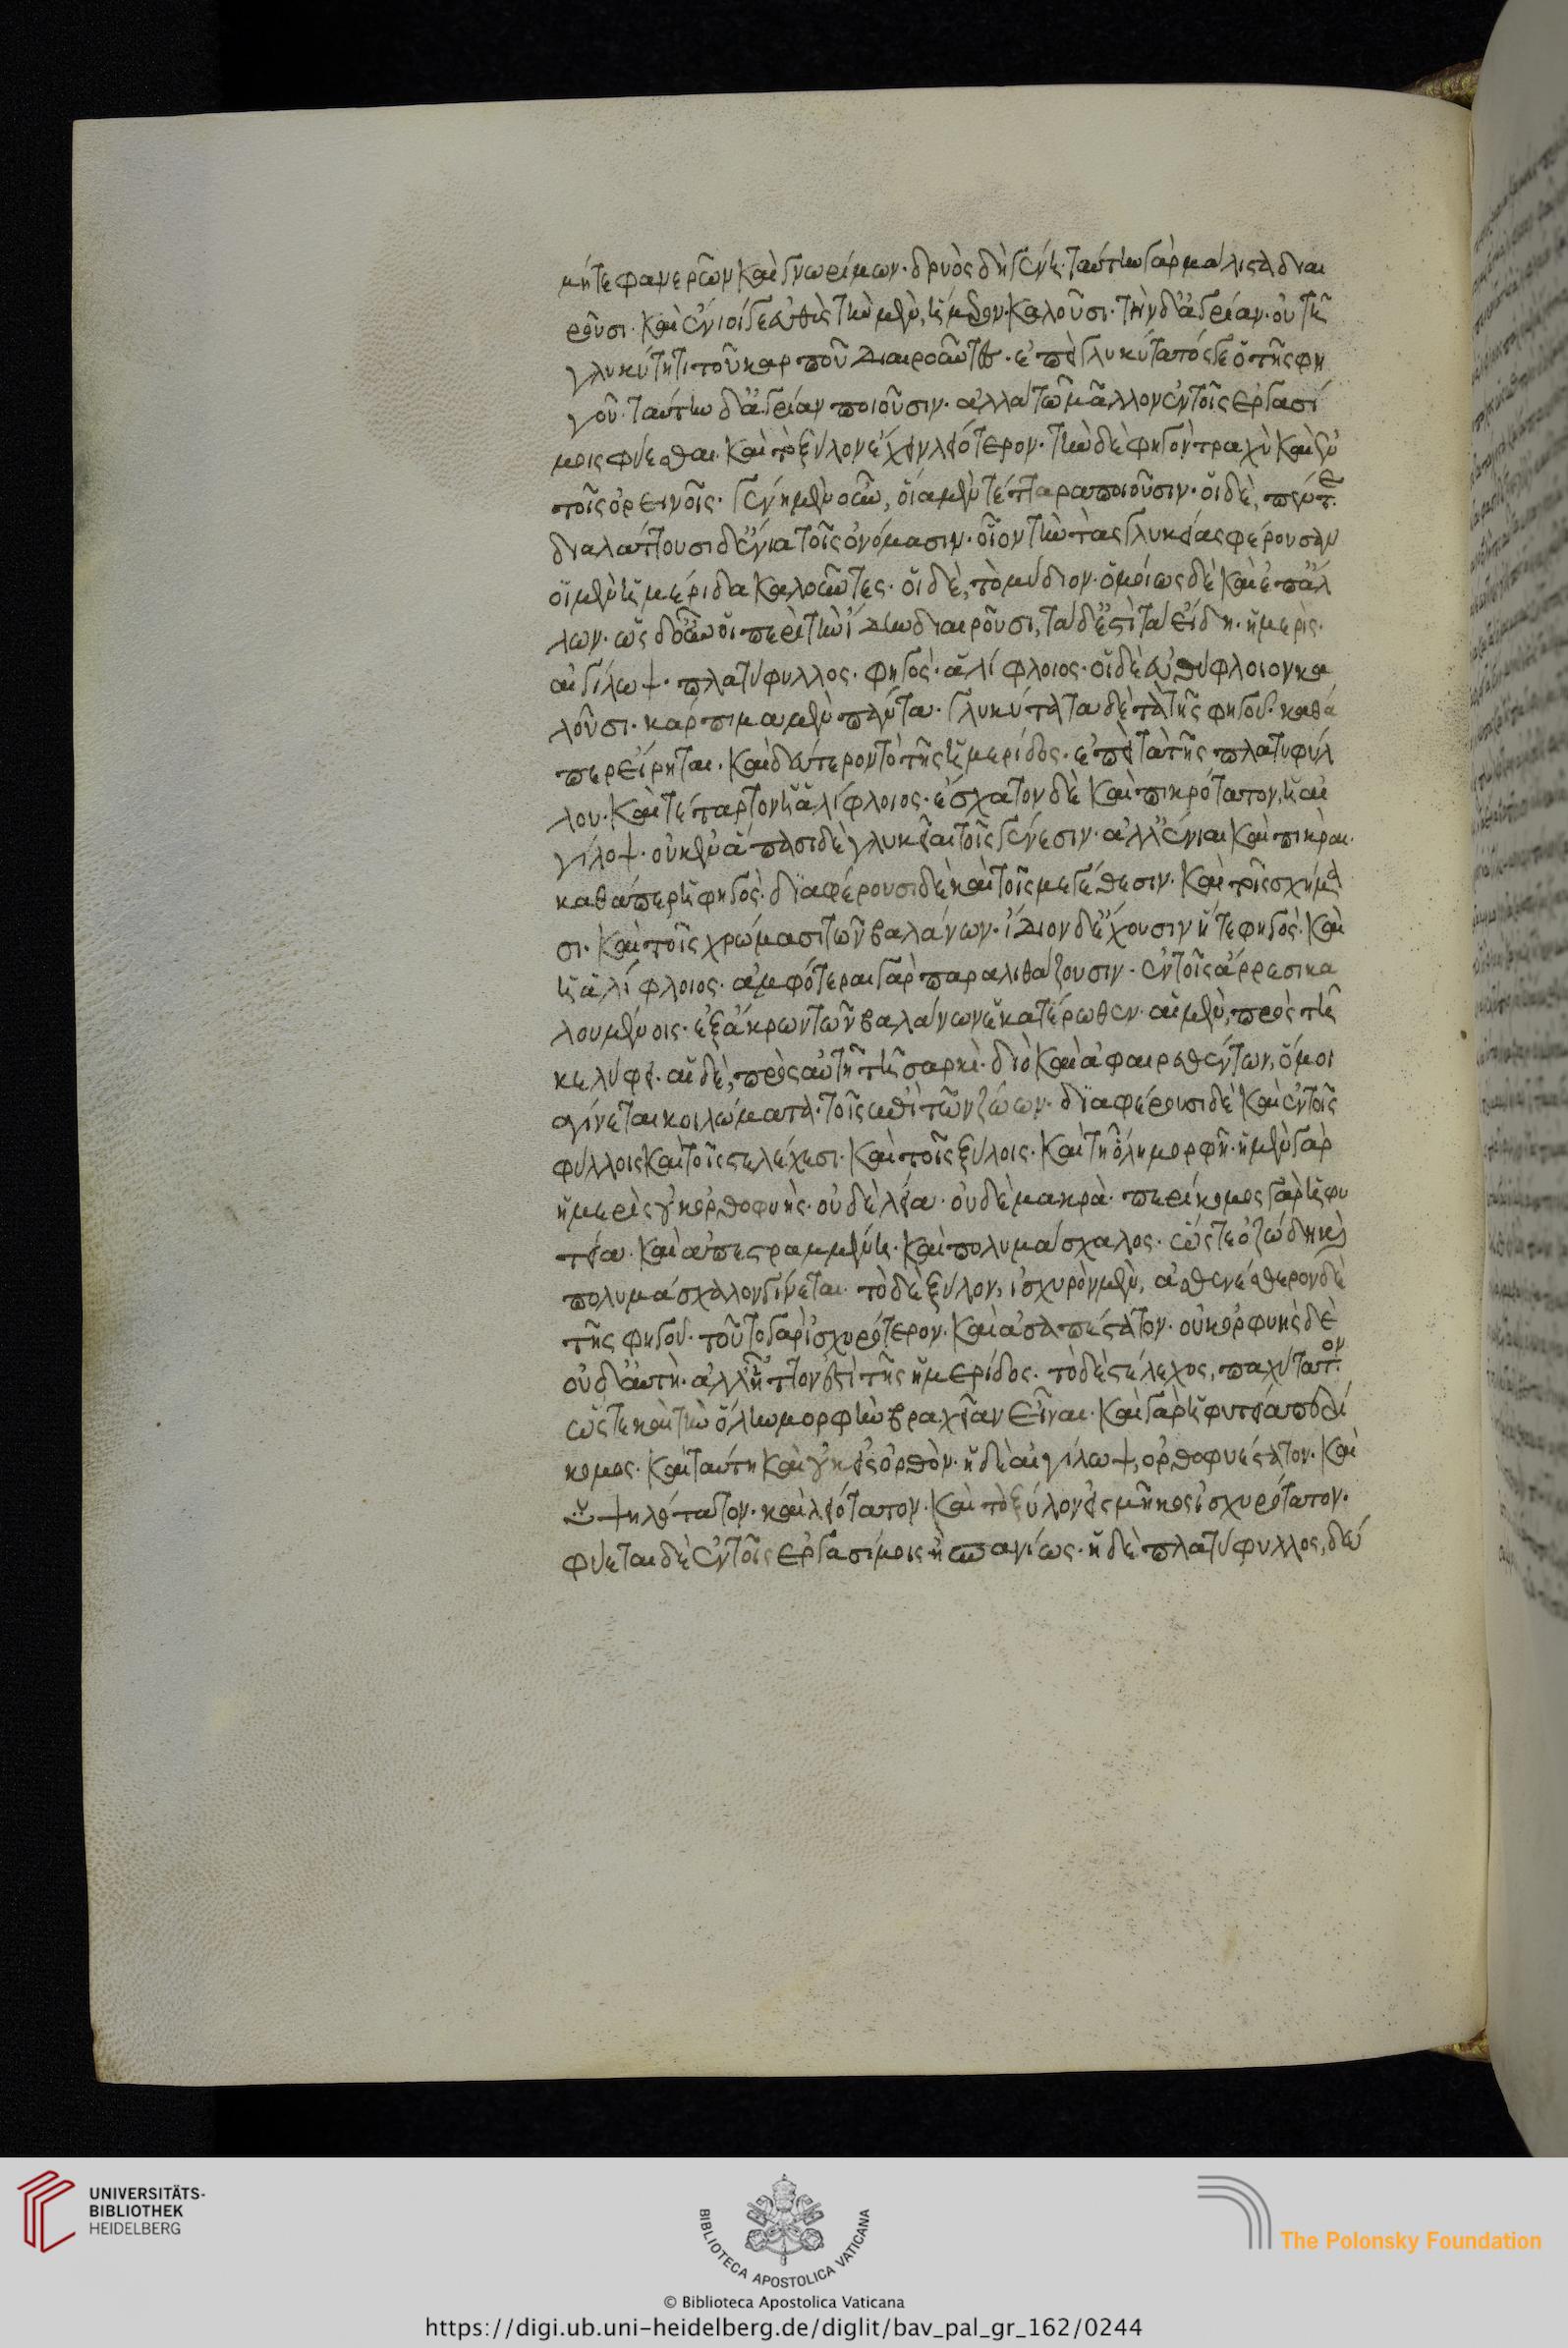 μήτε φανερῶν καὶ γνωρίμων· δρυὸς δὴ γένη· ταύτην γὰρ μάλιστα διαι
ροῦσι· καὶ ἔνιοί γε εὐθὺς τὴν μὲν, ἥμερον καλοῦσι· τὴν δ' ἀγρίαν· οὐ τῆ
γλυκύτητι τοῦ καρποῦ διαιροῦντες· ἐπεὶ γλυκύτατός γε ὁ τῆς φη
γοῦ· ταύτην δ' ἀγρίαν ποιοῦσιν· ἀλλὰ τῶ μᾶλλον ἐν τοῖς ἐργασί
μοις φύεσθαι· καὶ τὸ ξύλον ἔχειν λειότερον· τὴν δὲ φηγὸν τραχὺ καὶ ἐν
τοῖς ὀρεινοῖς· γένη μὲν οὖν, οἱ μὲν τέτταρα ποιοῦσιν· οἱ δὲ, πέντε·
διαλάττουσι δ' ἔνια τοῖς ὀνόμασιν· οἷον τὴν τὰς γλυκείας φέρουσαν
οἱ μὲν ἡμερίδα καλοῦντες· οἱ δὲ, ἐτυμόδρυν· ὁμοίως δὲ καὶ ἐπ' ἄλ
λων· ὡς δ' οὖν οἱ περὶ τὴν ἴδην διαιροῦσι, τάδ' ἐστὶ τὰ εἴδη· ἡμερίς·
αἰγίλωψ· πλατύφυλλος· φηγός· ἁλίφλοιος· οἱ δὲ εὐθύφλοιον κα
λοῦσι· κάρπιμα μὲν πάντα· γλυκύτατα δὲ τὰ τῆς φηγοῦ· καθά
περ εἴρηται· καὶ δεύτερον τὸ τῆς ἡμερίδος· ἔπειτα τῆς πλατυφύλ
λου· καὶ τέταρτον ἡ ἁλίφλοιος· ἔσχατον δὲ καὶ πικρότατον, ἡ αἰ
γίλοψ· οὐκ ἐν ἁπάσι δὲ γλυκεῖαι τοῖς γένεσιν· ἀλλ' ἔνιαι καὶ πικραί·
καθάπερ ἡ φηγός· διαφέρουσι δὲ καὶ τοῖς μεγέθεσιν· καὶ τοῖς σχήμα
σι· καὶ τοῖς χρώμασι τῶν βαλάνων· ἴδιον δ' ἔχουσιν ἥ τε φηγός· καὶ
ἡ ἁλίφλοιος· ἀμφότεραι γὰρ παραλιθάζουσιν· ἐν τοῖς ἄρρεσι κα
λουμένοις· ἐξ ἄκρων τῶν βαλάνων ἑκατέρωθεν· αἱ μὲν, πρὸς τῶ
κελύφει· αἱ δὲ, πρὸς αὐτῆ τῆ σαρκί· διὸ καὶ ἀφαιρεθέντων, ὅμοι
α γίνεται κοιλώματα· τοῖς ἐπὶ τῶν ζώων· διαφέρουσι δὲ καὶ ἐν τοῖς
φύλλοις καὶ τοῖς στελέχεσι· καὶ τοῖς ξύλοις· καὶ τῆ ὅλη μορφῆ· ἡ μὲν γὰρ
ἡμερὶς οὐκ ὀρθοφυής· οὐδὲ λεία· οὐδὲ μακρά· περίκομος γὰρ ἡ φυ
τεία· καὶ ἀπεστραμμένη· καὶ πολυμάσχαλος· ὥστε ὀζώδη καὶ
πολυμάσχαλον γίνεται· τὸ δὲ ξύλον, ἰσχυρὸν μὲν, ἀσθενέστερον δὲ
τῆς φηγοῦ· τοῦτο γὰρ ἰσχυρότερον· καὶ ἀσαπέστατον· οὐκ ὀρφυὴς δὲ
οὐδ' αὕτη· ἀλλ' ἧττον ἔτι τῆς ἡμερίδος· τὸ δὲ στέλεχος, παχύτατον·
ὥστε καὶ τὴν ὅλην μορφὴν βραχεῖαν εἶναι· καὶ γὰρ ἡ φυτεία περί
κομος· καὶ ταύτη καὶ οὐκ εἰς ὀρθόν· ἡ δὲ αἰγίλωψ, ὀρθοφυέστατον· καὶ
ὑψηλότατον· καὶ λειότατον· καὶ τὸ ξύλον εἰς μῆκος ἰσχυρότατον·
φύεται δὲ ἐν τοῖς ἐργασίμοις ἢ σπανίως· ἡ δὲ πλατύφυλλος, δευ
UNIVERSITÄTS-
BIBLIOTHEK
HEIDELBERG
BIBLIOTECA APOSTOLICA VATICANA
The Polonsky Foundation
© Biblioteca Apostolica Vaticana
https://digi.ub.uni-heidelberg.de/diglit/bav_pal_gr_162/0244